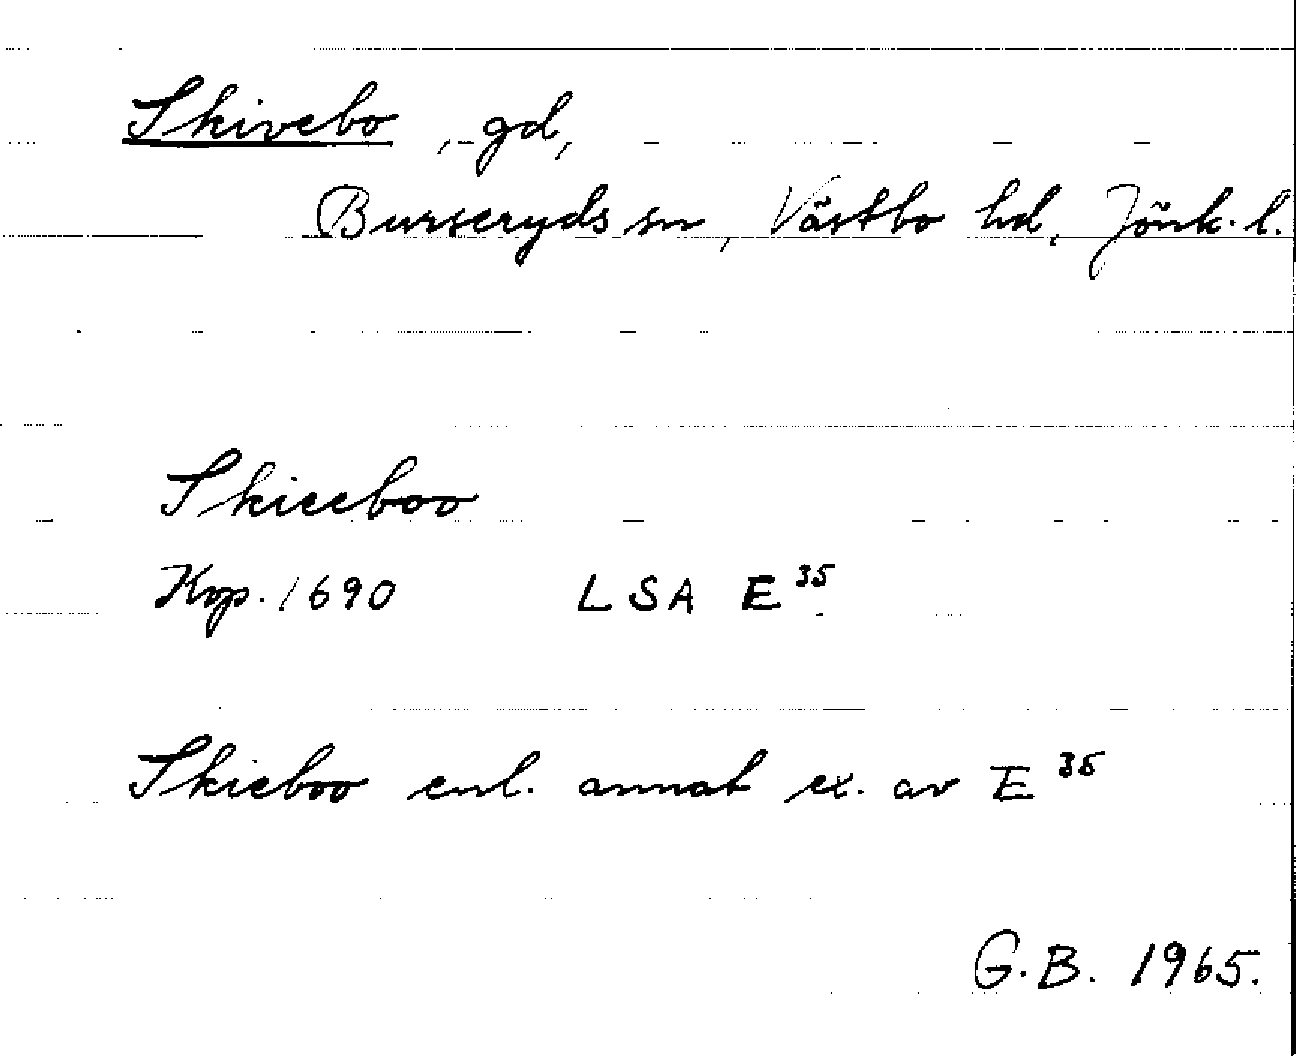 Skivebo, gd,
Burseryds sn, Västbo hd, Jönk. l.
Skieeboo
Kop. 1690 LSA E 35
Skieboo enl. annat ex. av E 35
G.B. 1965.